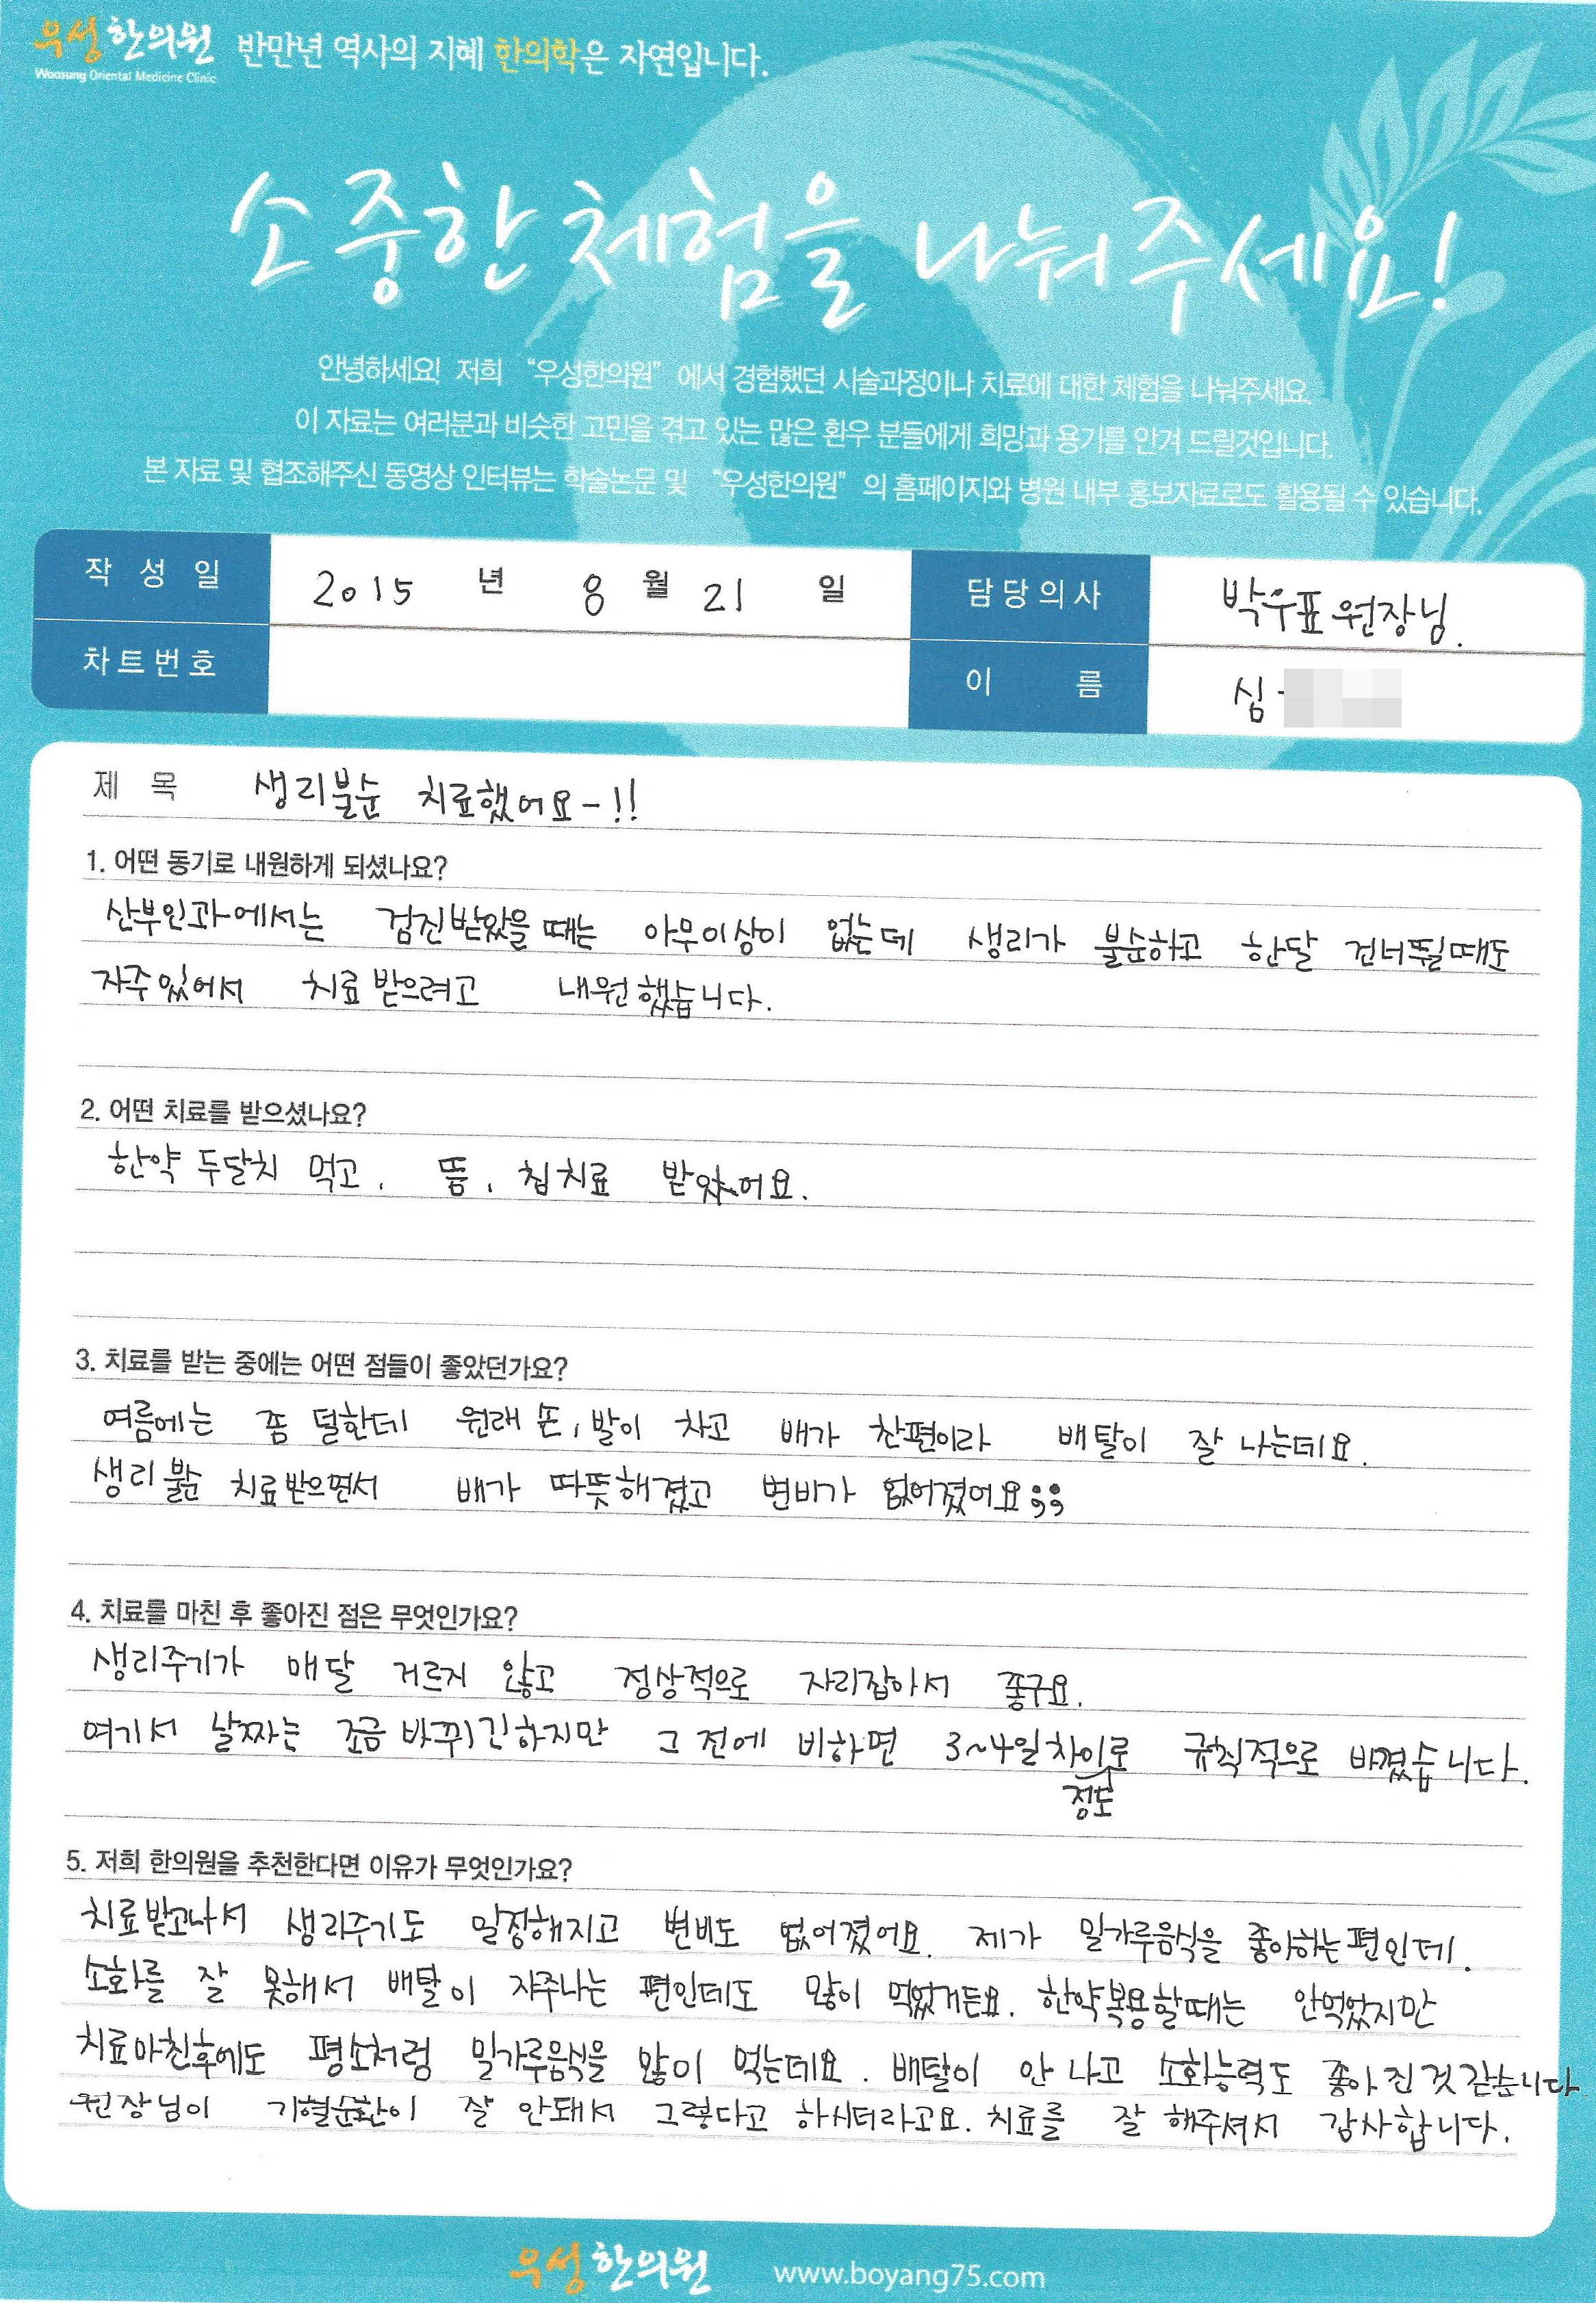 우성한의원 반만년 역사의 지혜 한의학은 자연입니다.
Woosung Oriental Medicine Clinic
소중한 체험을 나눠주세요!
안녕하세요! 저희 “우성한의원” 에서 경험했던 시술과정이나 치료에 대한 체험을 나눠주세요.
이 자료는 여러분과 비슷한 고민을 겪고 있는 많은 환우 분들에게 희망과 용기를 안겨 드릴것입니다.
본 자료 및 협조해주신 동영상 인터뷰는 학술논문 및 “우성한의원” 의 홈페이지와 병원 내부 홍보자료로도 활용될 수 있습니다.
작 성 일 2015 년 8 월 21 일 담당의사 박우표 원장님.
차트번호 이 름 심
제 목 생리불순 치료했어요-!!
1. 어떤 동기로 내원하게 되셨나요?
산부인과에서는 검진받았을 때는 아무이상이 없는데 생리가 불순하고 한달 건너뛸때도
자주있어서 치료받으려고 내원했습니다.
2. 어떤 치료를 받으셨나요?
한약 두달치 먹고, 뜸, 침치료 받았어요.
3. 치료를 받는 중에는 어떤 점들이 좋았던가요?
여름에는 좀 덜한데 원래 손, 발이 차고 배가 찬편이라 배탈이 잘 나는데요.
생리불순 치료받으면서 배가 따뜻해졌고 변비가 없어졌어요;;
4. 치료를 마친 후 좋아진 점은 무엇인가요?
생리주기가 매달 거르지 않고 정상적으로 자리잡아서 좋구요.
여기서 날짜는 조금 바뀌긴하지만 그 전에 비하면 3~4일차이로 규칙적으로 바꼈습니다.
정도
5. 저희 한의원을 추천한다면 이유가 무엇인가요?
치료받고나서 생리주기도 일정해지고 변비도 없어졌어요. 제가 밀가루음식을 좋아하는편인데.
소화를 잘 못해서 배탈이 자주나는 편인데도 많이 먹었거든요. 한약복용할때는 안먹었지만
치료마친후에도 평소처럼 밀가루음식을 많이 먹는데요. 배탈이 안 나고 소화능력도 좋아진것같습니다
원장님이 기혈순환이 잘 안돼서 그렇다고 하시더라고요. 치료를 잘 해주셔서 감사합니다.
우성한의원 www.boyang75.com